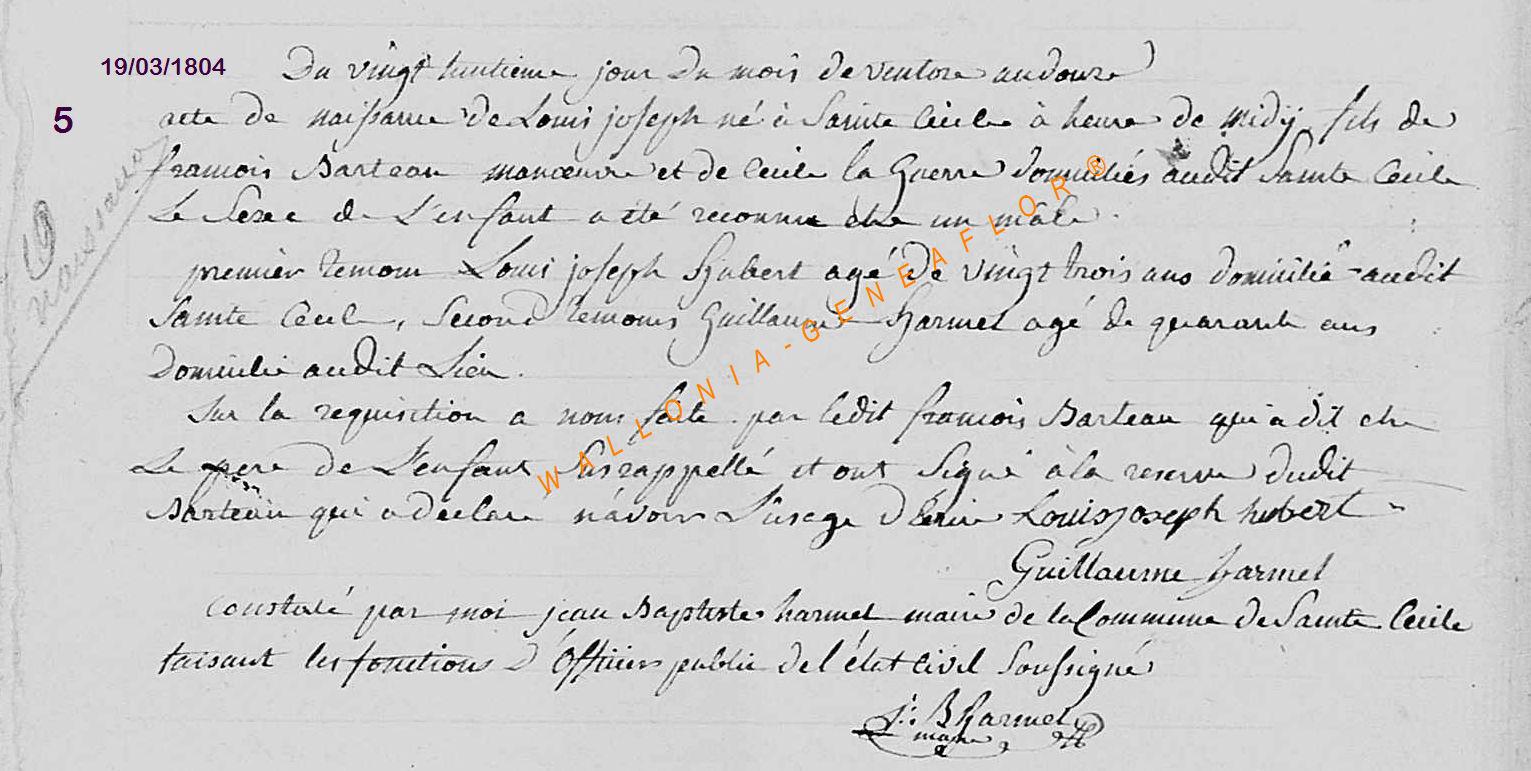 19/03/1804
Du vingt huitieme jour du mois de ventose an douze
5
acte de naissance de Louis joseph né à Sainte Cécile à heure de midij fils de
françois Barteau manœuvre et de Cecile la Guerre domiciliés audit Sainte Cecile
Le Sexe de L'enfant a été reconnu etre un mâle.
19
naissance
premier temoin Louis joseph Hubert agé de vingt trois ans domicilié audit
Sainte Cecile, Second temoins Guillaume Harmel agé de quarante ans
Domicilié audit Lieu.
Sur la requisition a nous faite par ledit françois Barteau qui a dit etre
Le pere de L'enfant Susrappellé et ont Signé à la reserve dudit
Barteau qui a declaré n'avoir L'usage d'Ecrire Louis joseph hubert
Guillaume harmel
Constaté par moi jean Baptiste harmel maire de la Commune de Sainte Cecile
faisant les fonctions d'Officier public de l'état civil Soussigné
J: B harmel
maire
WALLONIA-GENEAFLOR®